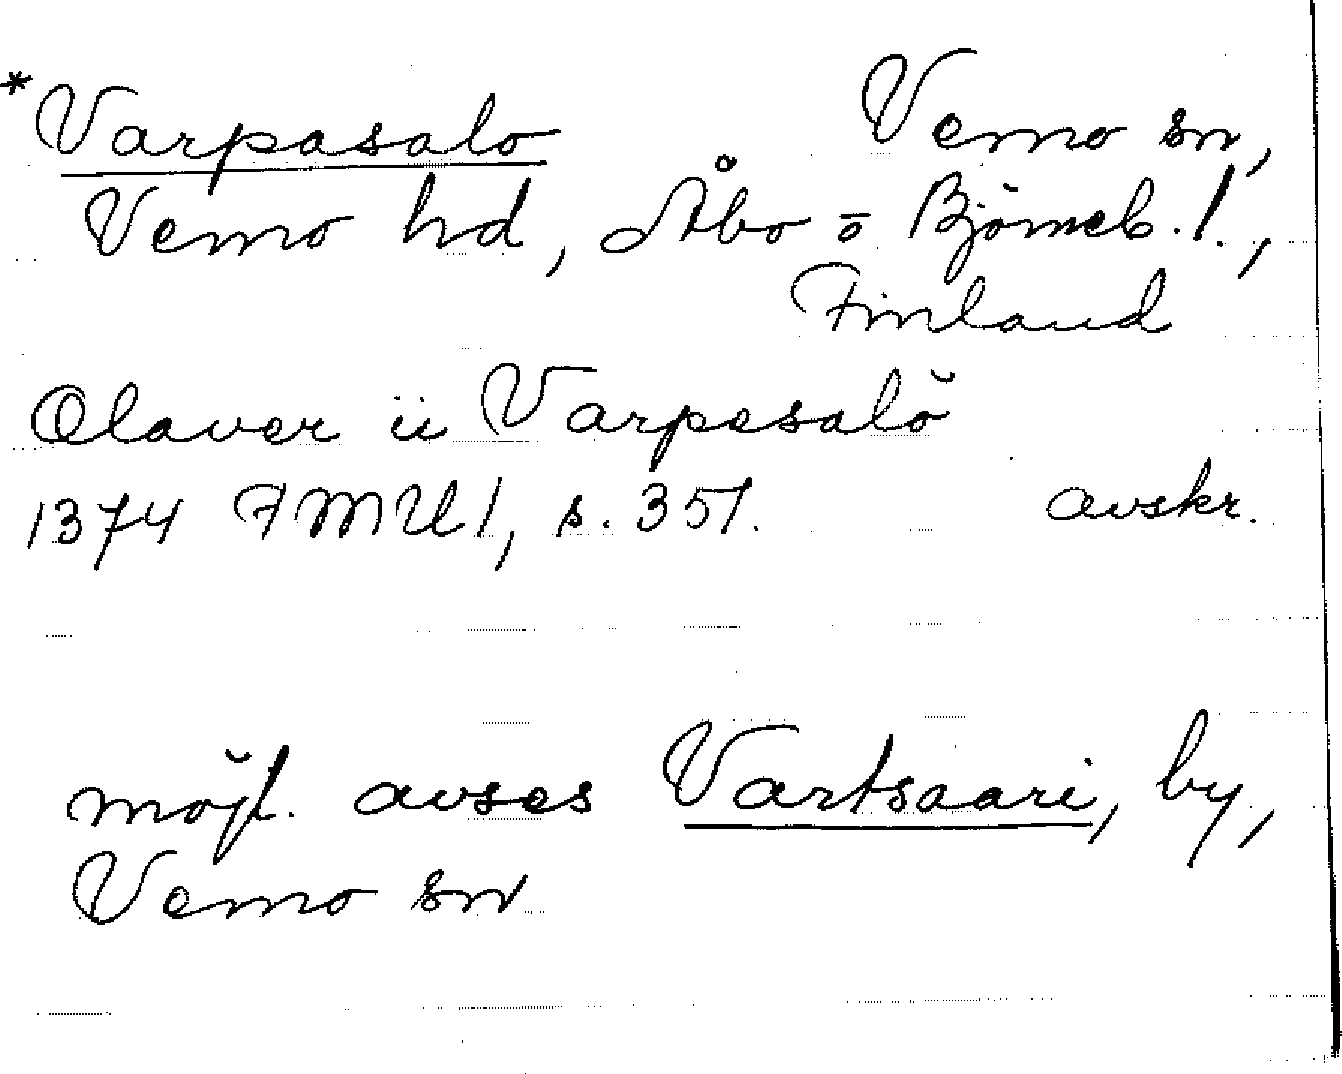 *Varpasalo Vemo sn,
Vemo hd, Åbo o Björneb. l.,
Finland
Olaver ii Varpesalo
1374 FMU 1, s. 351. avskr.
möjl. avses Vartsaari, by,
Vemo sn